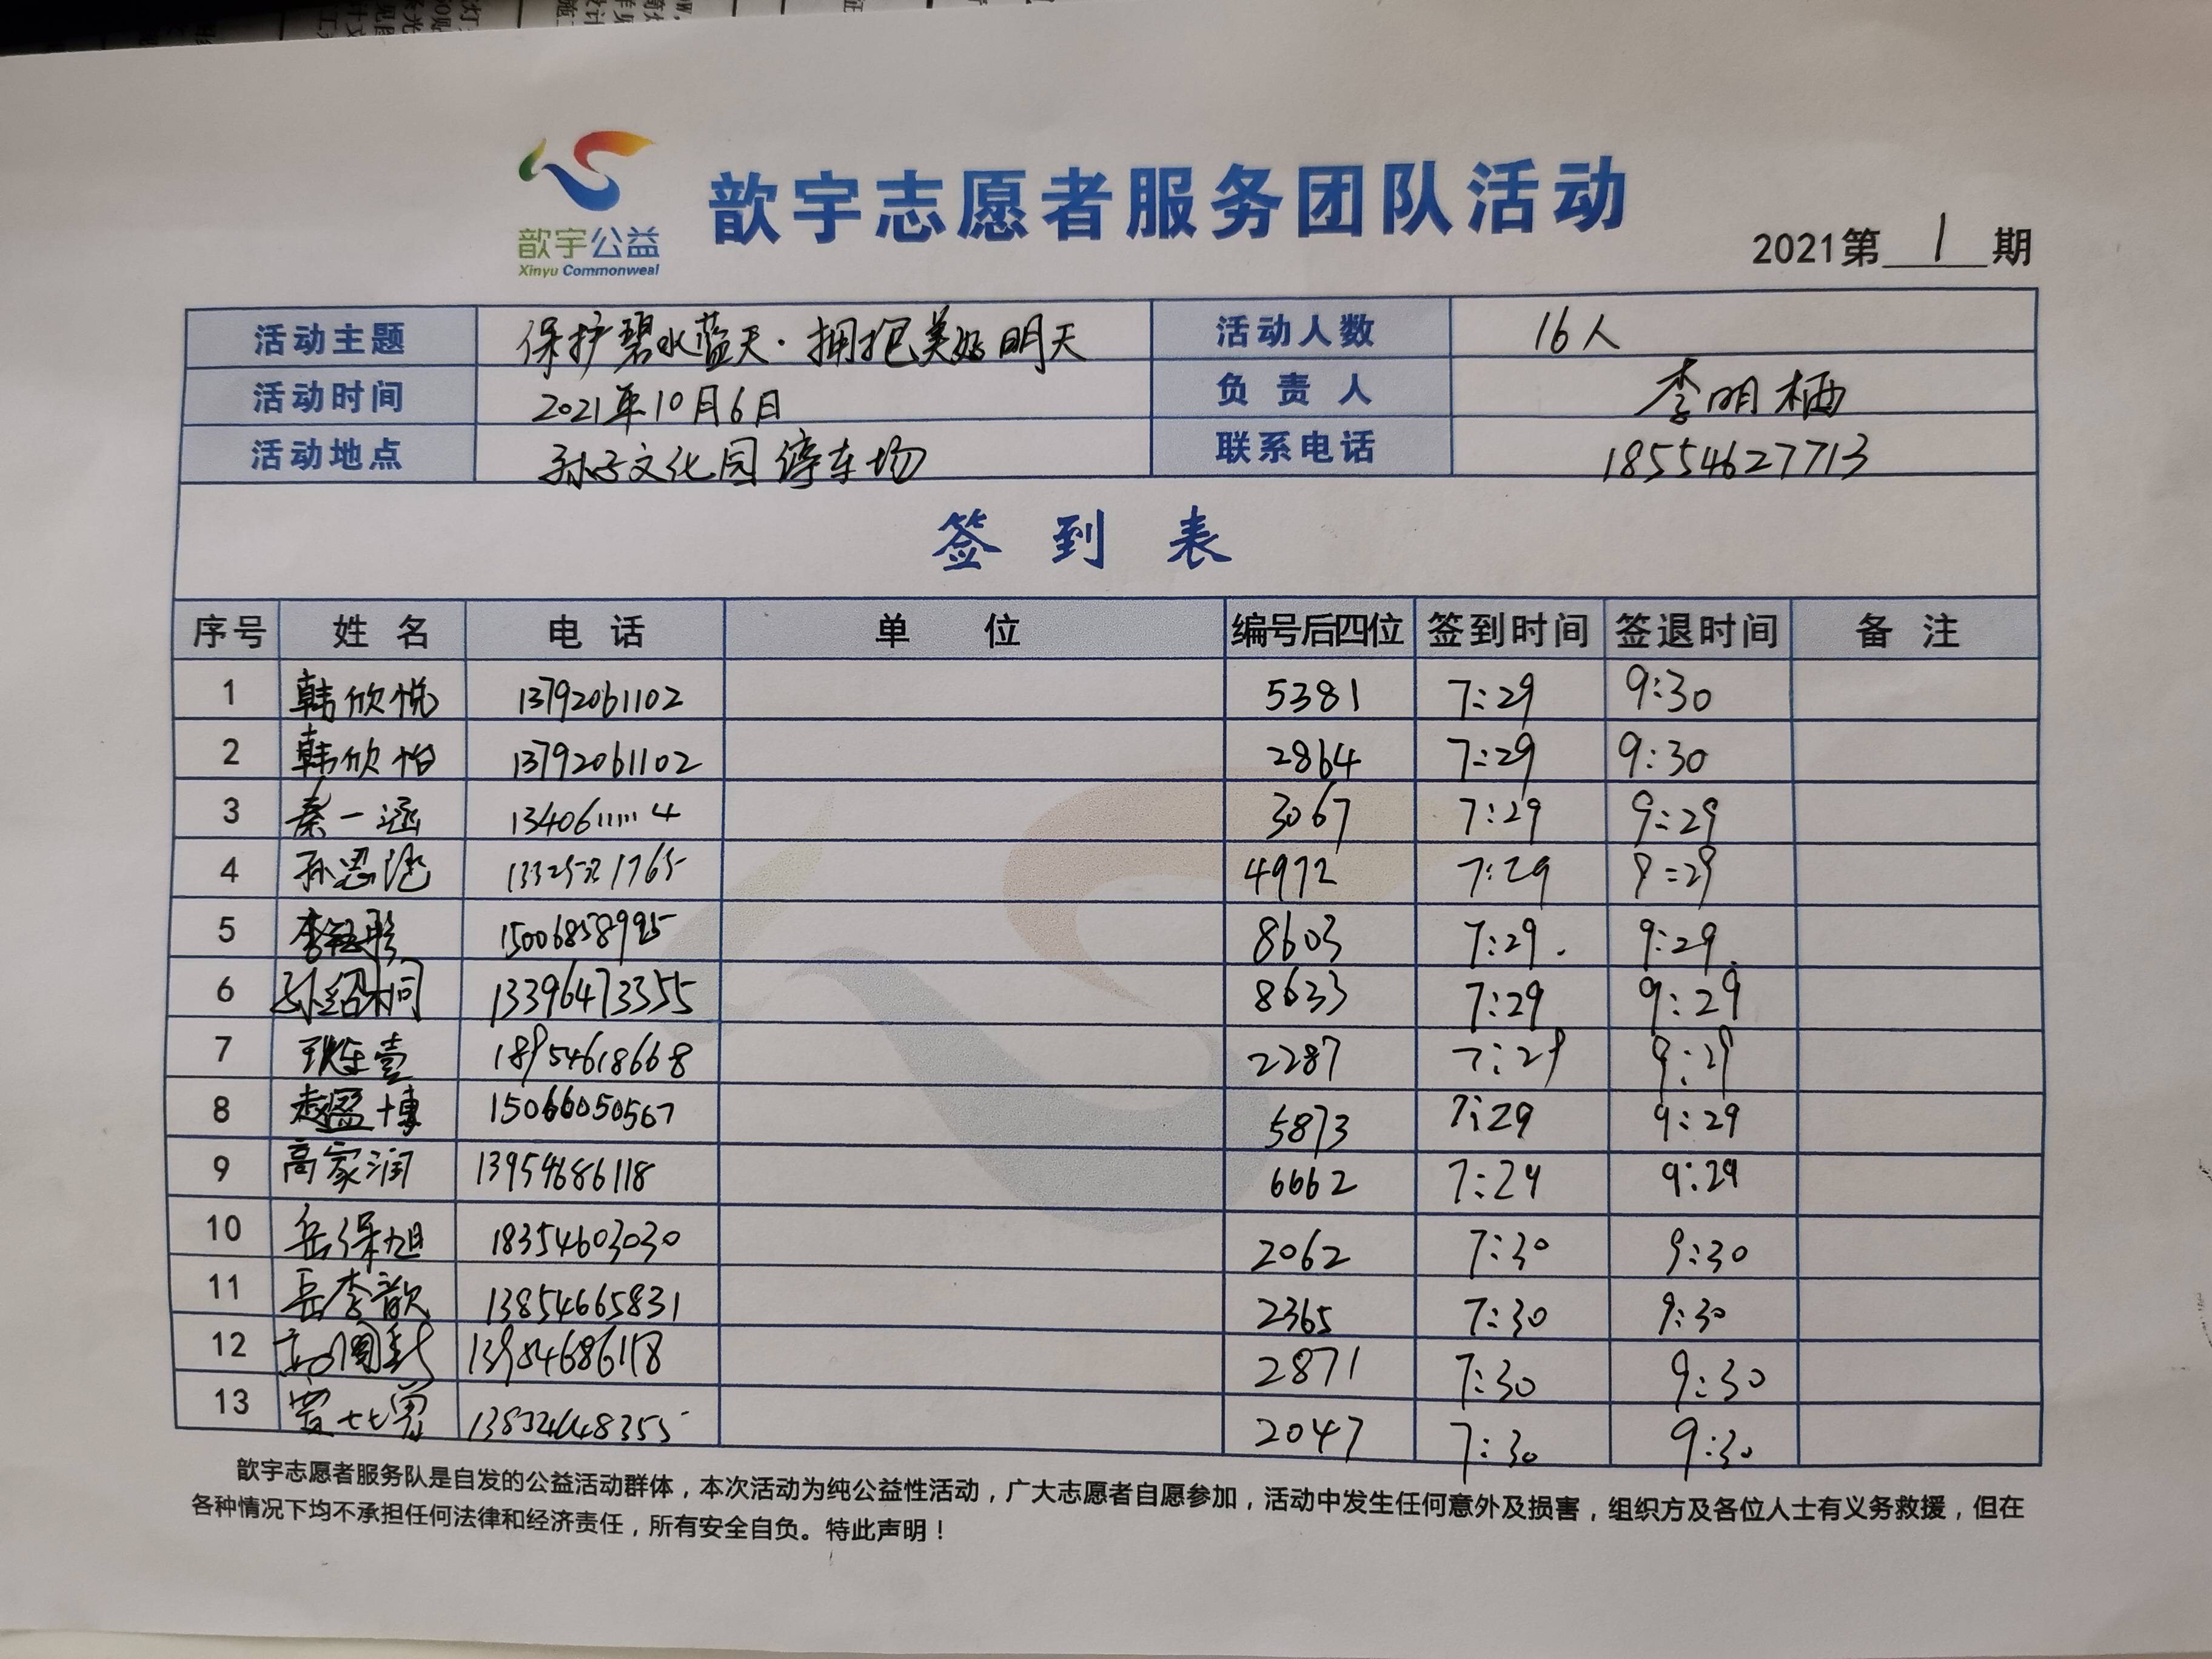 歆宇公益
Xinyu Commonweal
歆宇志愿者服务团队活动
2021第 1 期
活动主题 保护碧水蓝天·拥抱美好明天 活动人数 16人
活动时间 2021年10月6日 负责人 李明栖
活动地点 孙子文化园停车场 联系电话 18554627713
签到表
序号 姓名 电话 单位 编号后四位 签到时间 签退时间 备注
1 韩欣悦 13792061102 5381 7:29 9:30
2 韩欣怡 13792061102 2864 7:29 9:30
3 秦一涵 3067 7:29 9:29
4 4972 7:29 9:29
5 15006858995 8603 7:29. 9:29.
6 孙绍桐 13396473355 8633 7:29 9:29
7 18954618668 2287 7:29 9:29
8 赵盈博 15066050567 5873 7:29 9:29
9 高家润 13954686118 6662 7:29 9:29
10 岳保旭 18354603030 2062 7:30 9:30
11 岳李歆 13854665831 2365 7:30 9:30
12 2871 7:30 9:30
13 2047 7:30 9:30
歆宇志愿者服务队是自发的公益活动群体，本次活动为纯公益性活动，广大志愿者自愿参加，活动中发生任何意外及损害，组织方及各位人士有义务救援，但在
各种情况下均不承担任何法律和经济责任，所有安全自负。特此声明！